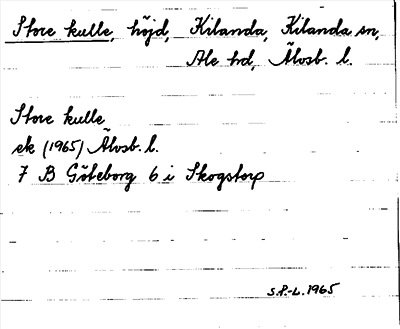 Store kulle, höjd, Kilanda, Kilanda sn,
Ale hd, Älvsb. l.
Store kulle
ek (1965) Älvsb. l.
7 B Göteborg 6 i Skogstorp
S.P-L. 1965